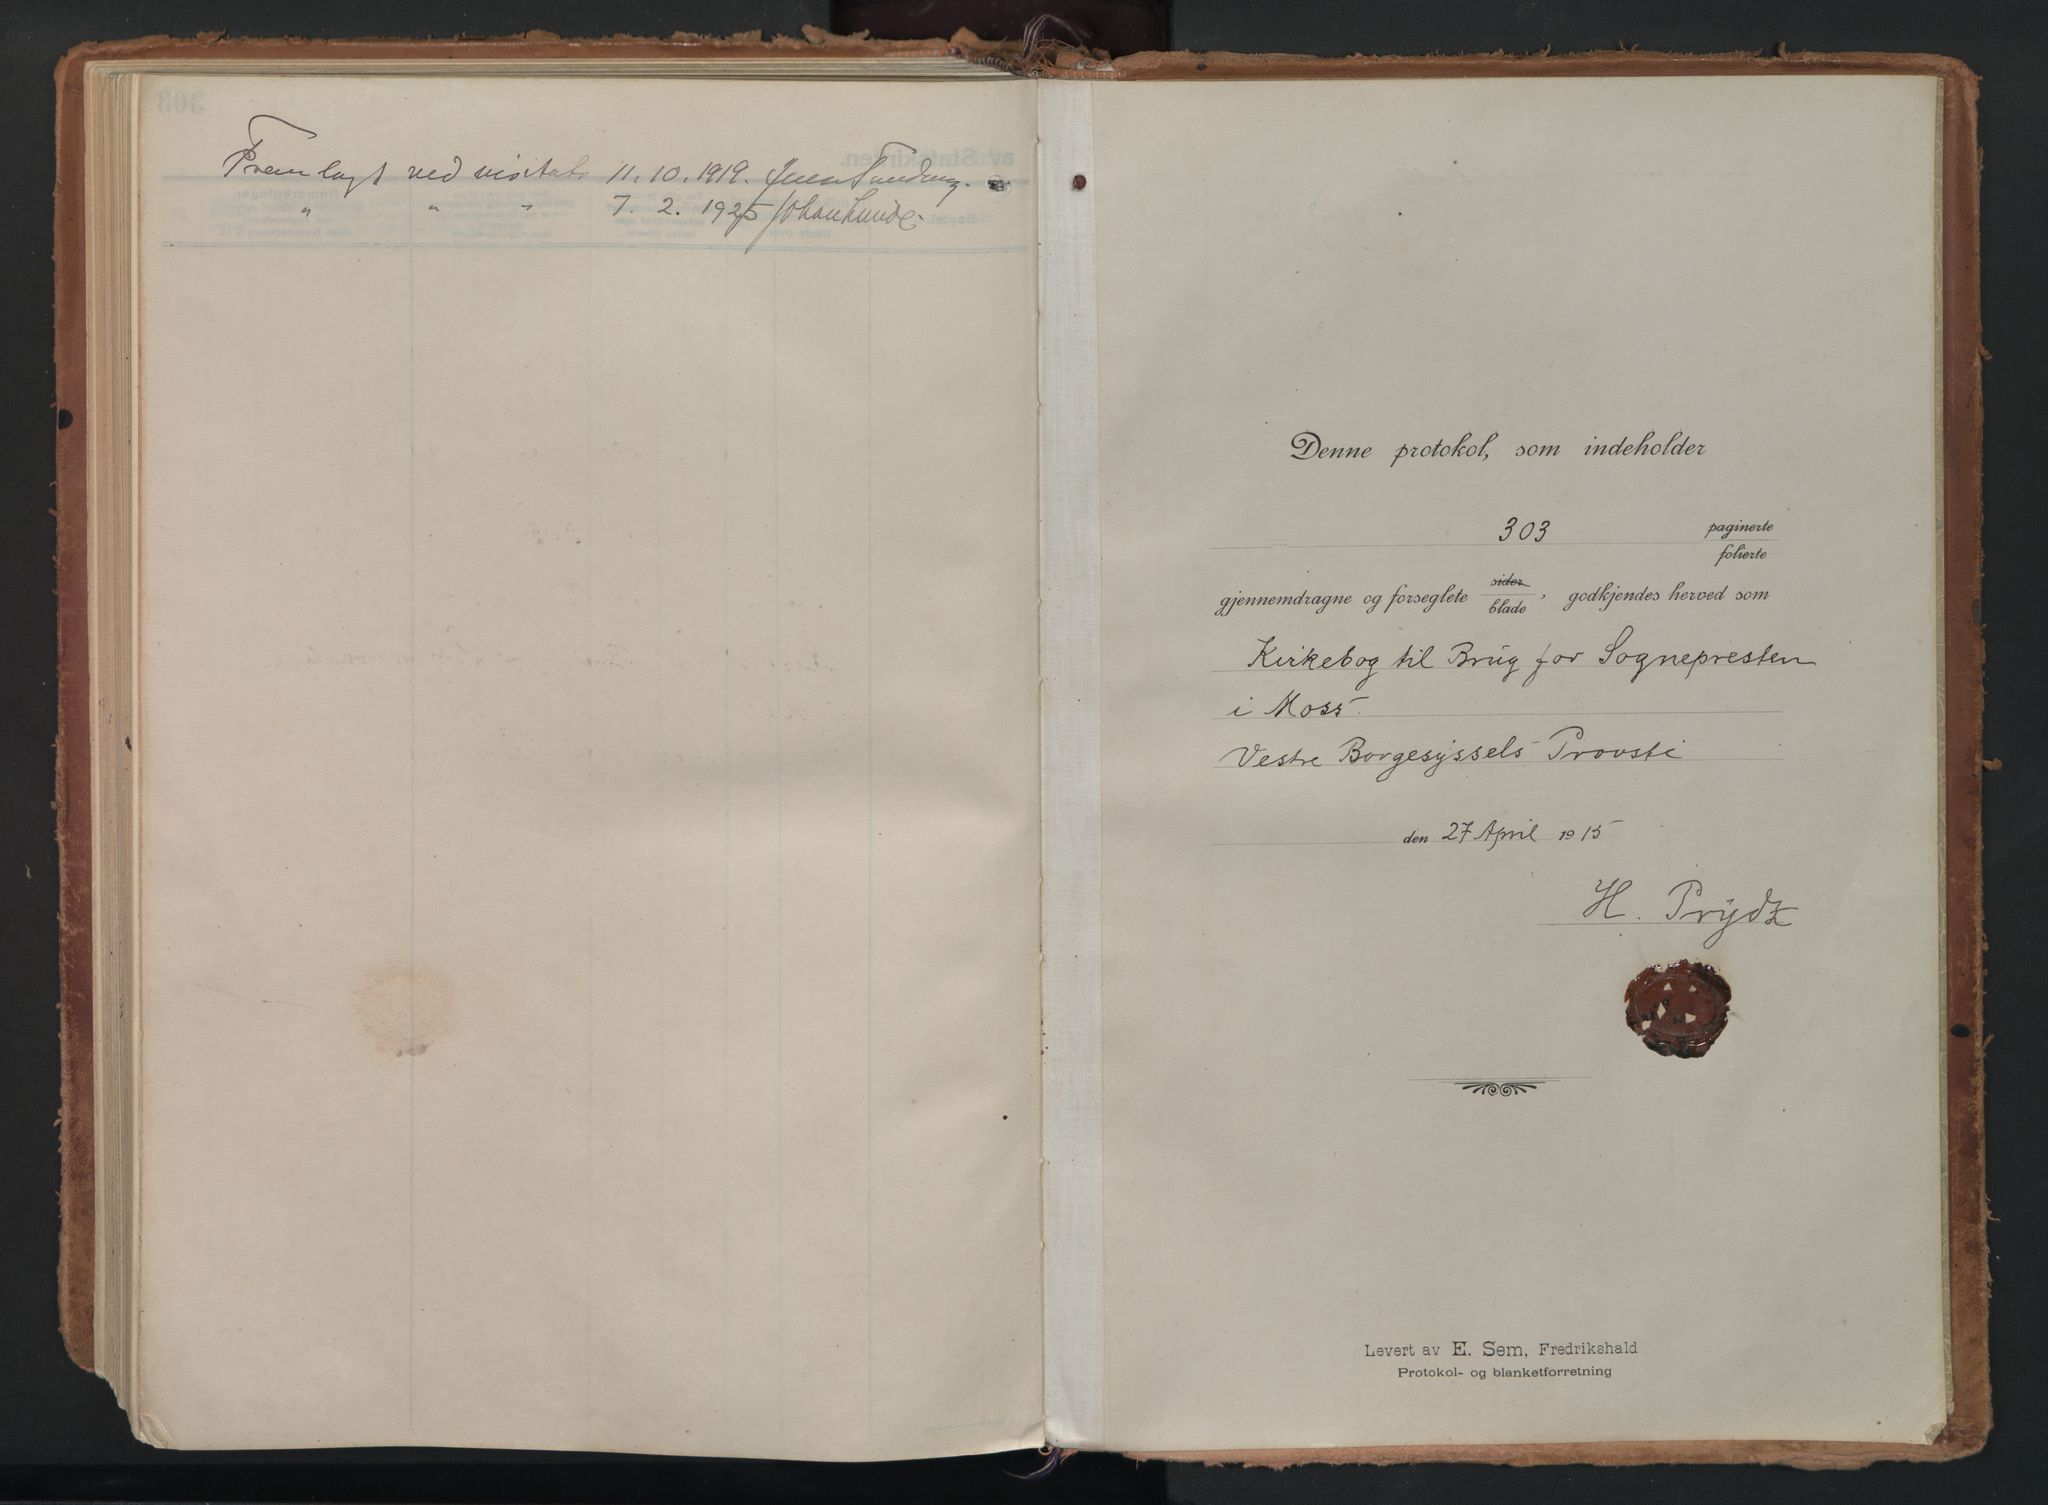 Fremlagt ved visitats 11.10.1919. Jens Tandberg.
" " " 7. 2. 1925 Johan Lunde.
Denne protokol, som indeholder
303 paginerte
folierte
gjennemdragne og forseglete sider
blade, godkjendes herved som
Kirkebog til Brug for Sognepresten
i Moss
Vestre Borgesyssels Provsti
den 27 April 1915
H. Prydz
Levert av E. Sem, Fredrikshald
Protokol- og blanketforretning